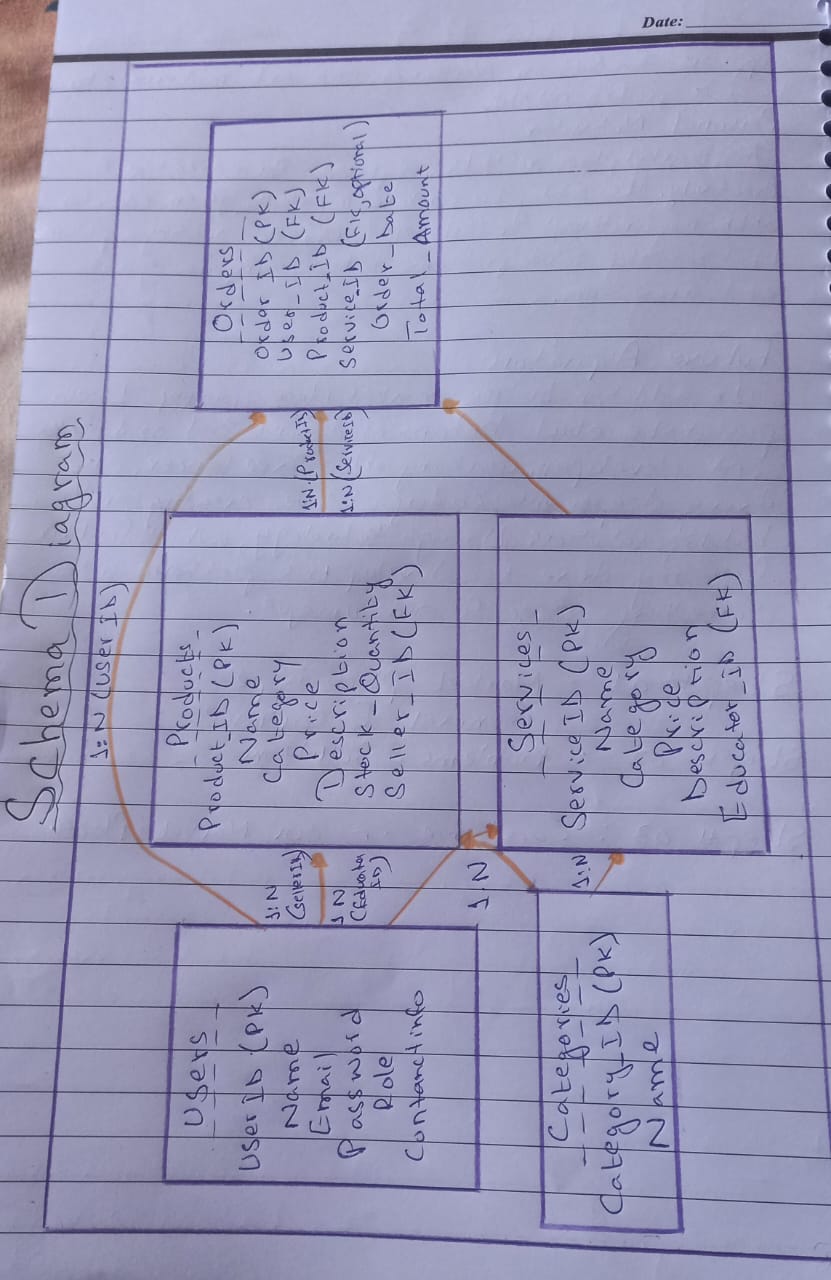 Date:
Schema Diagram
1:N (User ID)
Users
User ID (PK)
Name
Email
Password
Role
Contanctinfo
1:N
(seller ID)
1:N
(Educator
ID)
Products
Product_ID (PK)
Name
Category
Price
Description
Stock_Quantity
Seller_ID (FK)
1:N (Product ID)
1:N (Service ID)
Orders
Order_ID (PK)
User_ID (FK)
Product_ID (FK)
Service_ID (FK, optional)
Order_Date
Total_Amount
Categories
Category_ID (PK)
Name
1:N
1:N
Services
Service ID (PK)
Name
Category
Price
Description
Educator_ID (FK)